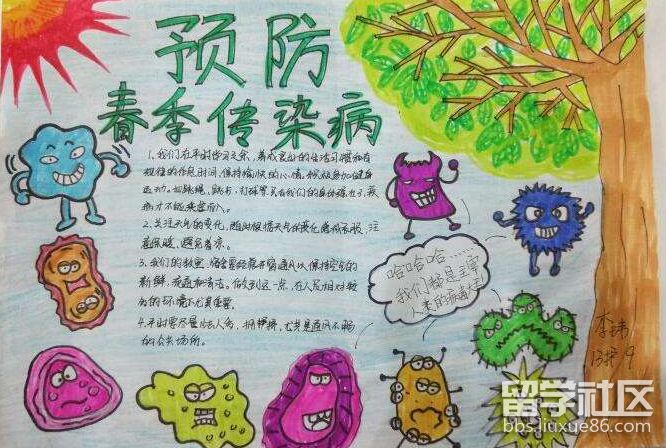 预防
春季传染病
1.我们在平时学习之余，养成良好的生活习惯和有
规律的作息时间，保持愉快的心情，积极参加健身
运动，如跳绳、跳书、打球等，只有我们的身体强壮了，疾
病才不能来侵害人。
2.关注天气的变化，随时根据天气的变化增减衣服，注
意保暖，避免着凉。
3.我们的教室、宿舍要经常开窗通风以保持空气的
新鲜，
做到这一点，在人员相对较
的环境下尤其重要。
4.平时要尽量少去人多、拥挤，尤其是通风不畅
的公共场所。
哈哈哈……
我们都是主宰
人类的病毒大王
李玮
13护9
留学社区
bbs.liuxue86.com